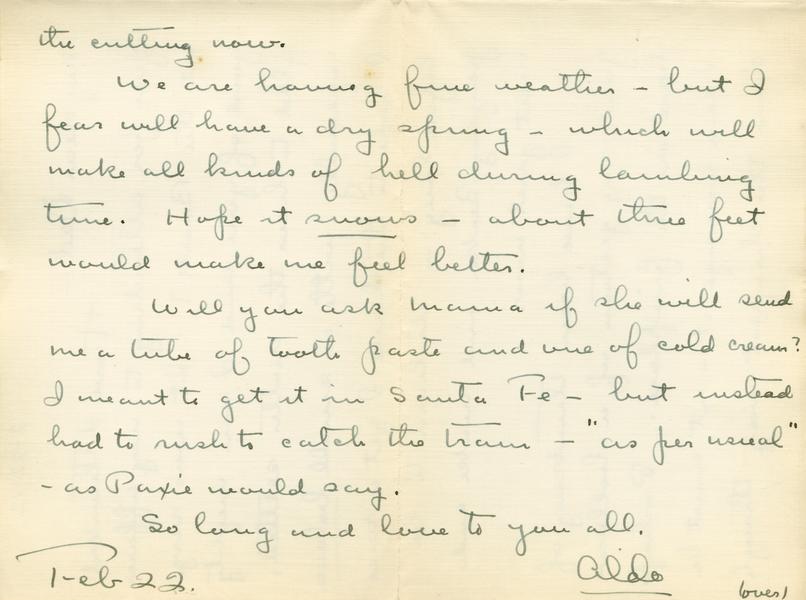 the cutting now.
We are having fine weather – but I
fear will have a dry spring – which will
make all kinds of hell during lambing
time. Hope it snows – about three feet
would make me feel better.
Will you ask Mama if she will send
me a tube of tooth paste and one of cold cream?
I meant to get it in Santa Fe – but instead
had to rush to catch the train – "as per usual"
- as Paxie would say.
So long and love to you all.
Aldo
Feb 22.
(over)